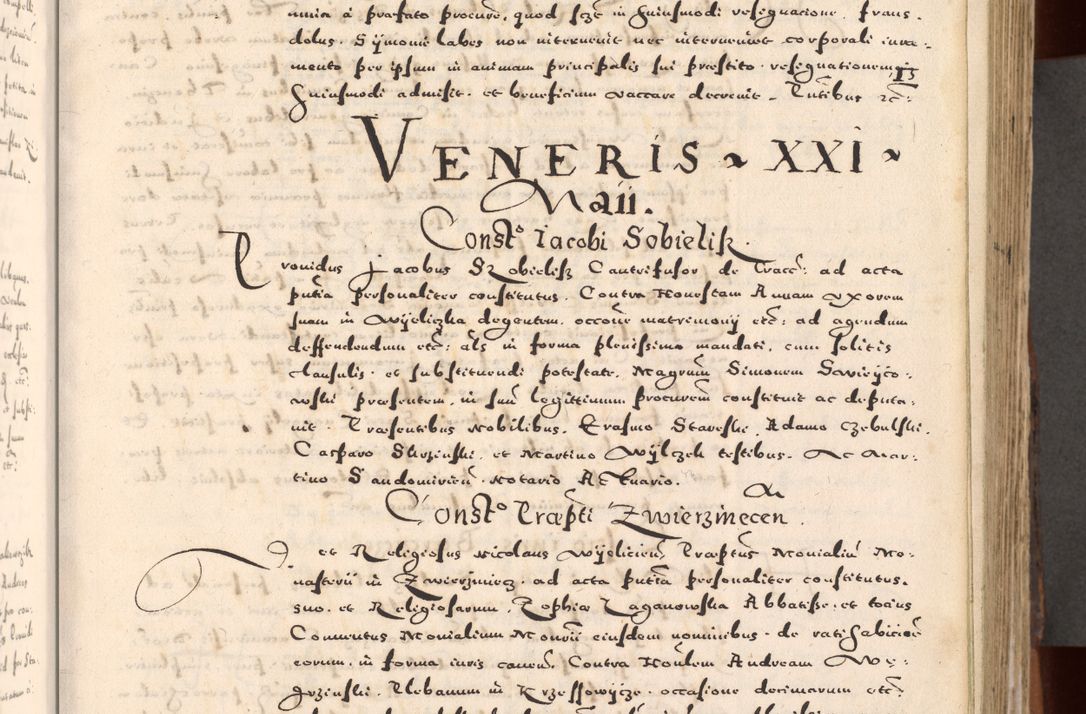 nuncia a præfato procure, quod scze in huiusmodi resignacione fraus,
dolus, Symonie labes non intervenit nec interveniet corporali iura:
mento per ipsum in animam principalis sui præstito resignationem
huiusmodi admisit et beneficium vaccare decrevit. Pntibus etc:
VENERIS ~ XXI ~
Maii.
Const:o Jacobi Sobielisz.
Providus Jacobus Skobielisz Cantrifusor de Cracc: ad acta
pntia personaliter constitutus. Contra Honestam Annam uxorem
suam in Wyeliczka degentem, occone matrimonij etc: ad agendum
deffendendum etc: als in forma plenissimo mandati, cum solitis
clausulis et substituendi potestate, Magrum Simonem Swieyco:
wski præsentem, in suu legittimum procurem constituit ac deputa:
vit. Præsentibus Nobilibus, Erasmo Stareski, Adamo Czebulski,
Casparo Skrzinski, et Martino Wylczek testibus. Ac Mar:
tino Sandomirien Notario Actuario.
Const:o Præpti Zwierzinecen.
D. et Religiosus Nicolaus Wysliciens Præptus Monialiu Mo:
nasterii in Zwierziniecz ad acta pntia personaliter constitutus.
suo, et Religiosarum, Zophia Zaganowska Abbatisse, et tocius
Conventus Monialium Monrii eiusdem nominibus, de ratihabicioe
eorum in forma iuris caven. Contra Honlem Andream We:
grzinski, Plebanum in Krzessowycze, occasione decimarum etc: